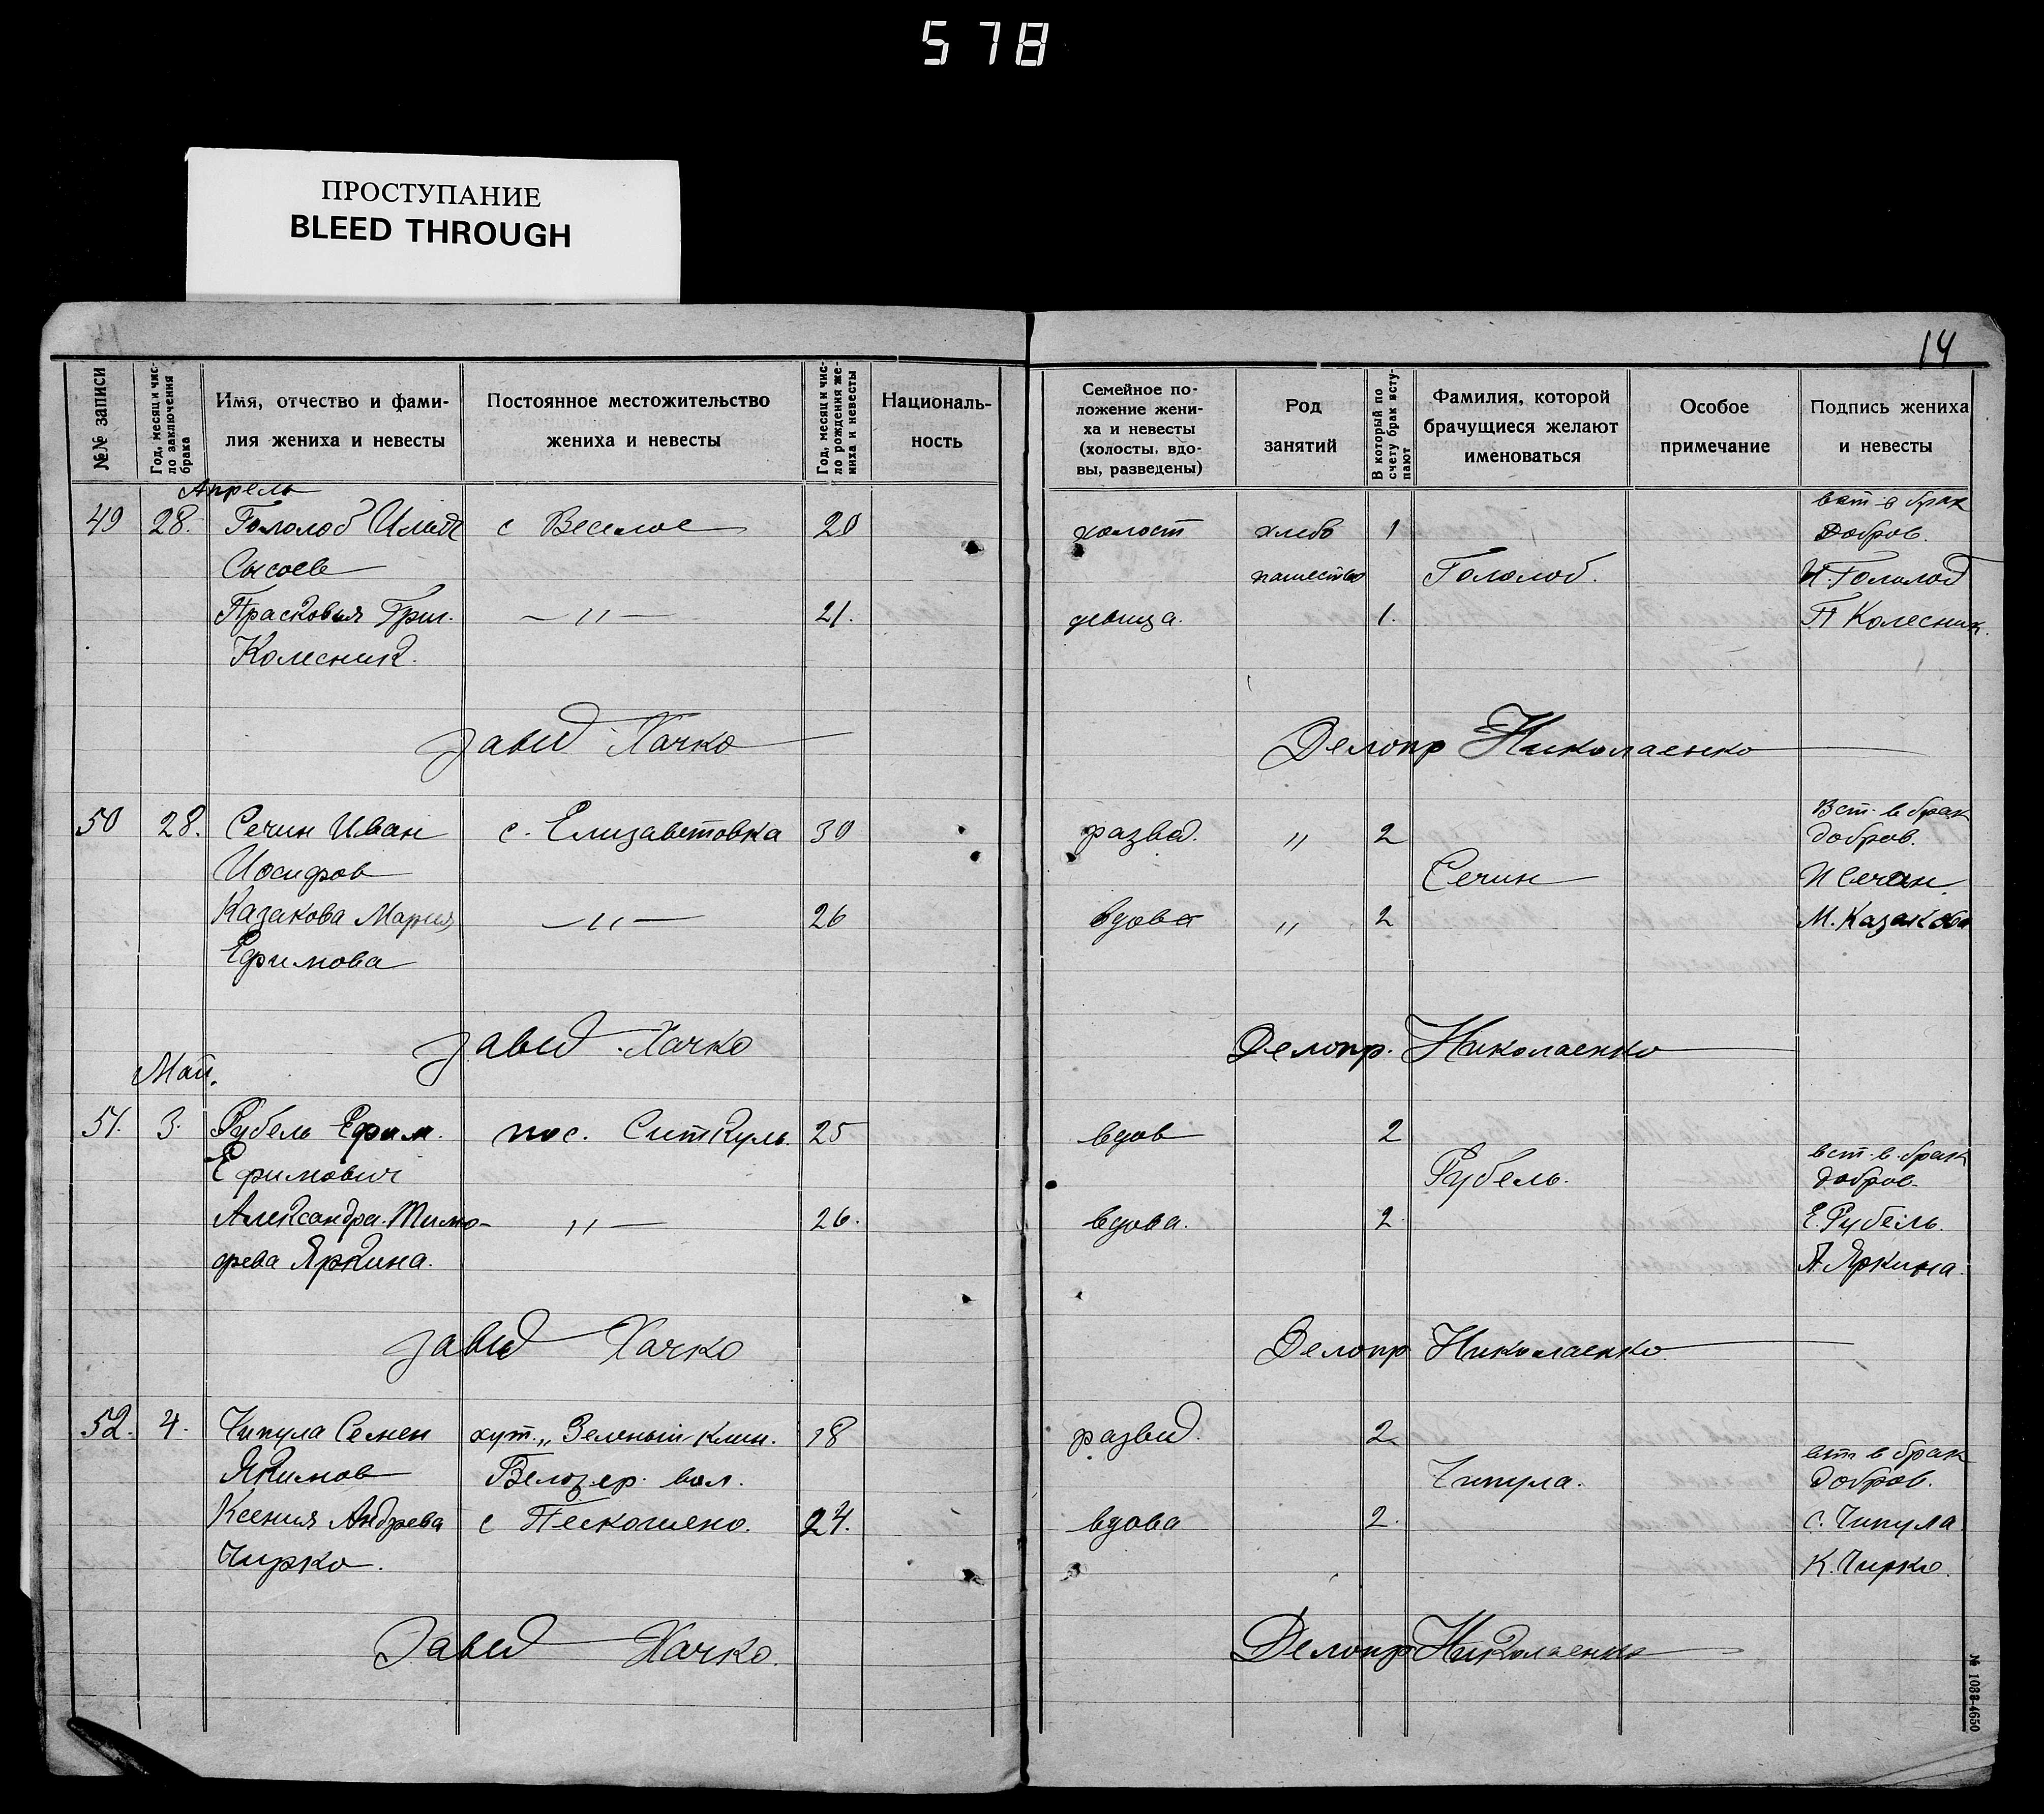 578
ПРОСТУПАНИЕ
BLEED THROUGH
14
№№ записи
Год, месяц и число заключения брака
Имя, отчество и фамилия жениха и невесты
Постоянное местожительство жениха и невесты
Год, месяц и число рождения жениха и невесты
Националь-
ность
Семейное по-
ложение жени-
ха и невесты
(холосты, вдо-
вы, разведены)
Род
занятий
В который по
счету брак всту-
пают
Фамилия, которой
брачущиеся желают
именоваться
Особое
примечание
Подпись жениха
и невесты
Апрель
вст в брак
49 28. Гололоб с Веселое 20 холост хлебо 1 Добров.
Сысоев пашество Гололоб. И. Гололоб
Прасковья Григ. —〃— 21. девица. 1. П Колесник.
Колесник.
Завед Хачко Делопр Николаенко
Вст. в брак
50 28. Сечин Иван с. Елизаветовка 30 развед. 〃 2 добров.
Иосифов Сечин И Сечин.
Казакова Мария —〃— 26 вдова 〃 2 М. Казакова
Ефимова
Завед. Хачко Делопр. Николаенко
Май.
51. 3. Рубель Ефим. пос. Ситкуль. 25 вдов 2
вст. в брак
Ефимович Рубель. добров.
Александра Тимо- 〃— 26. вдова. 2. Е. Рубель.
феева Яркина. А. Яркина.
Завед Хачко Делопр Николаенко.
52. 4. Чипула Семен хут. „Зеленый Клин. 18 развед. 2
вст в брак
Якимов Белозер. вол. Чипула. добров.
Ксения Андреева с 24. вдова 2. С. Чипула.
Чирко. К. Чирко.
Завед Хачко. Делопр Николаенко
№ 1088-4650